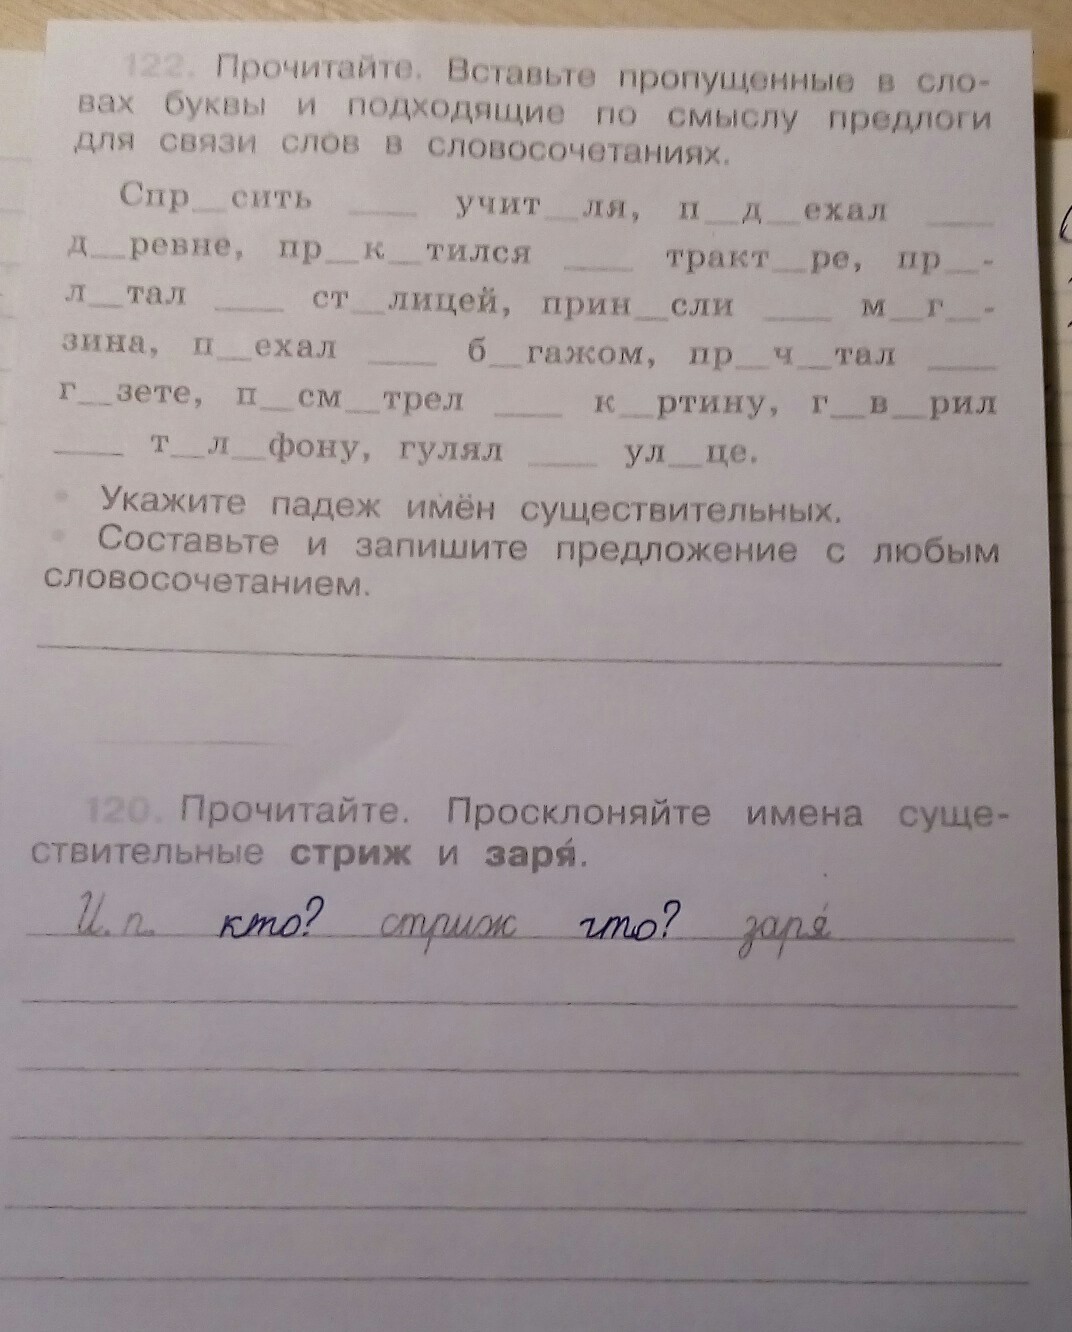 122. Прочитайте. Вставьте пропущенные в сло-
вах буквы и подходящие по смыслу предлоги
для связи слов в словосочетаниях.
Спр__сить ____ учит__ля, п__д__ехал ____
д__ревне, пр__к__тился ____ тракт__ре, пр__-
л__тал ____ ст__лицей, прин__сли ____ м__г__-
зина, п__ехал ____ б__гажом, пр__ч__тал ____
г__зете, п__см__трел ____ к__ртину, г__в__рил
____ т__л__фону, гулял ____ ул__це.
• Укажите падеж имён существительных.
• Составьте и запишите предложение с любым
словосочетанием.
120. Прочитайте. Просклоняйте имена суще-
ствительные стриж и заря́.
И. п. кто? стриж что? заря́